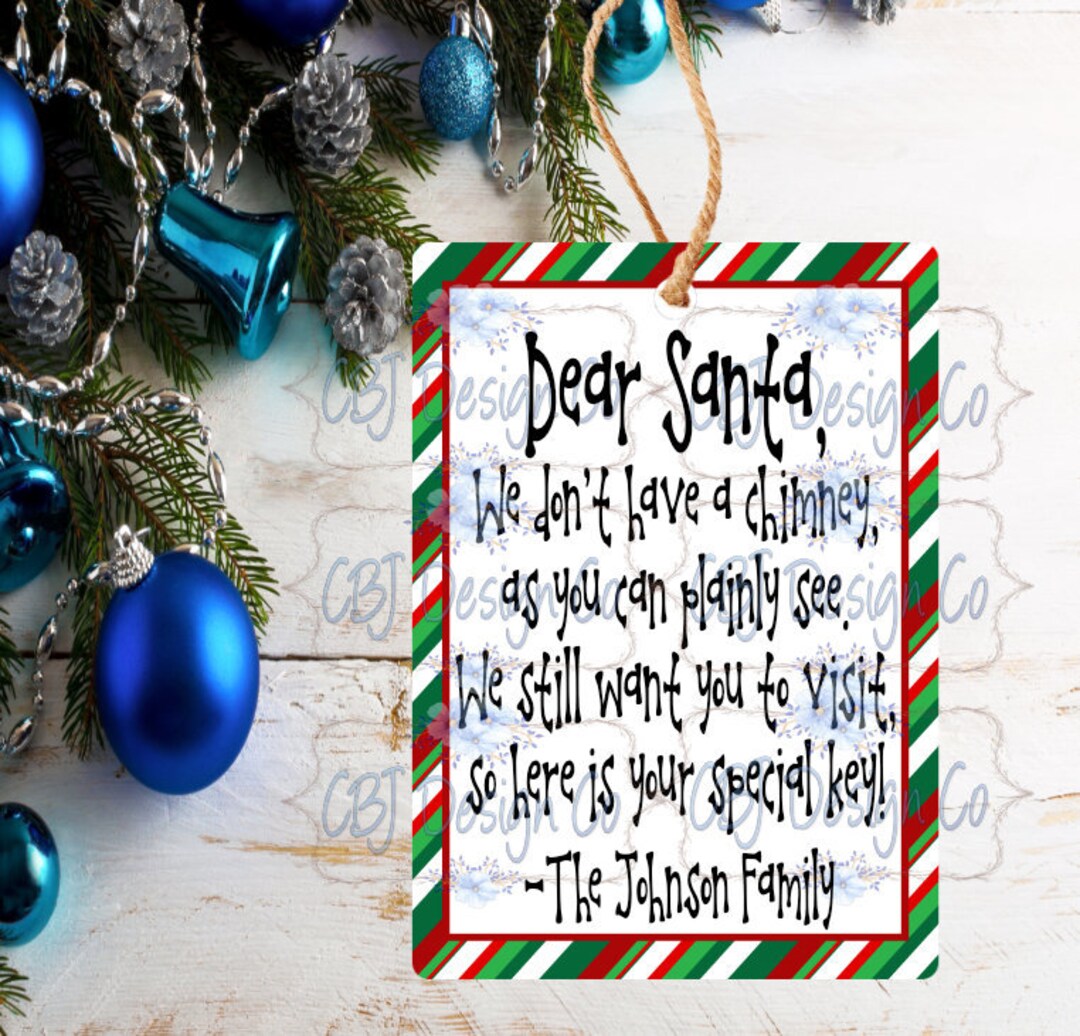 Dear Santa,
We don't have a chimney,
as you can plainly see.
We still want you to visit,
so here is your special key!
-The Johnson Family
CBJ Design Co
CBJ Design Co
CBJ Design Co
CBJ Design Co
CBJ Design Co
CBJ Design Co